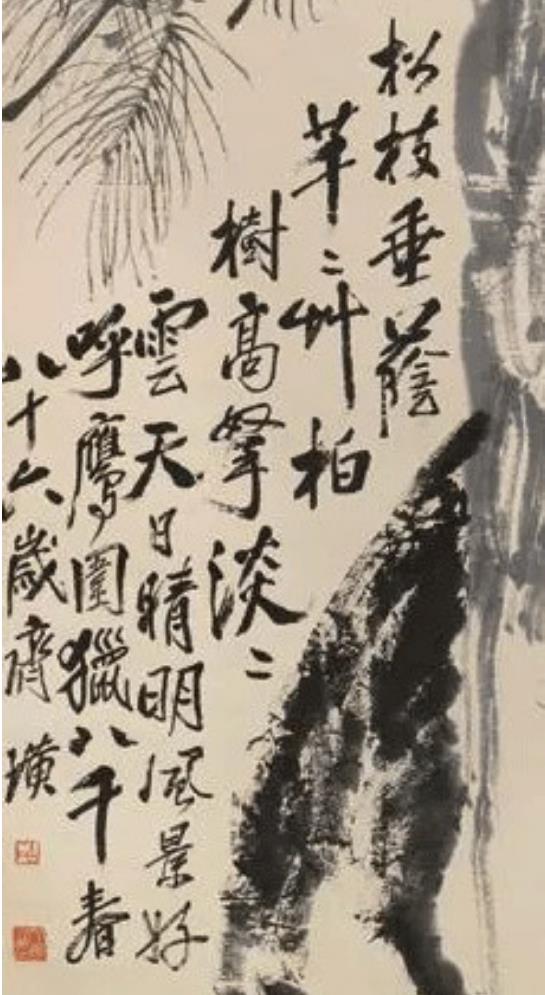 松枝垂蔭
芊〻艸柏
樹高拏淡〻
雲天日晴明風景好
呼鷹圍獵八千春
八十六歲齊璜